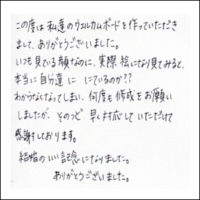 この度は私達のウェルカムボードを作っていただき
まして、ありがとうございました。
いつも見ている顔なのに、実際絵になり見てみると、
本当に自分達に にているのか??
わからなくなってしまい、何度も修成をお願い
しましたが、そのつど早く対応していただけて
感謝しております。
結婚のいい記念になりました。
ありがとうございました。